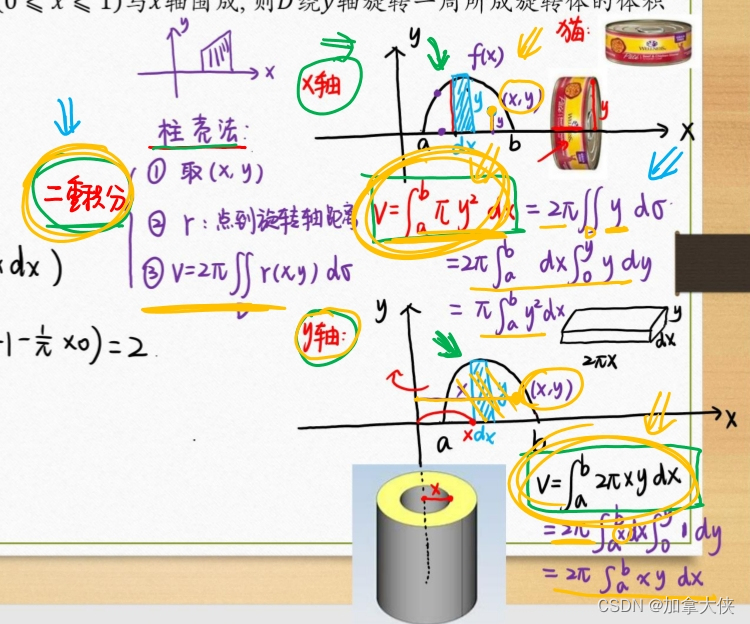 (0 ⩽ x ⩽ 1)与x轴围成, 则D绕y轴旋转一周所成旋转体的体积
y
x
柱壳法:
① 取(x,y)
② r:点到旋转轴距离
③ V=2π∬r(x,y)dσ
D
二重积分
x dx)
-1-\frac{1}{π}×0)=2
x轴
y
f(x)
(x,y)
y
y
a
dx
b
x
猫:
y
V=∫_a^b πy²dx =2π∬_D y dσ
=2π∫_a^b dx∫_0^y y dy
=π∫_a^b y²dx
y轴:
y
x
y
(x,y)
a
x
dx
b
x
y
dx
2πx
x
V=∫_a^b 2πxy dx
=2π∫_a^b x dx∫_0^y 1 dy
=2π∫_a^b xy dx
CSDN @加拿大侠